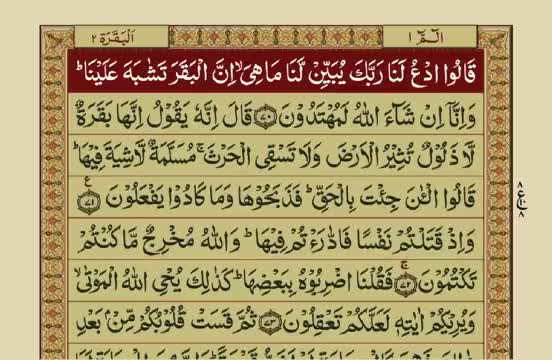 الٓمّٓ ١
اَلْبَقَرَة ٢
قَالُوا ادْعُ لَنَا رَبَّكَ يُبَيِّنْ لَّنَا مَا هِيَ ۙ اِنَّ الْبَقَرَ تَشٰبَهَ عَلَيْنَا ؕ
وَاِنَّاۤ اِنْ شَآءَ اللّٰهُ لَمُهْتَدُوْنَ ﴿۷۰﴾ قَالَ اِنَّهٗ يَقُوْلُ اِنَّهَا بَقَرَةٌ
لَّا ذَلُوْلٌ تُثِيْرُ الْاَرْضَ وَلَا تَسْقِى الْحَرْثَ ۚ مُسَلَّمَةٌ لَّا شِيَةَ فِيْهَا ؕ
قَالُوا الْـٰٔنَ جِئْتَ بِالْحَقِّ ؕ فَذَبَحُوْهَا وَمَا كَادُوْا يَفْعَلُوْنَ ﴿۷۱﴾ ع
وَاِذْ قَتَلْتُمْ نَفْسًا فَادّٰرَءْتُمْ فِيْهَا ؕ وَاللّٰهُ مُخْرِجٌ مَّا كُنْتُمْ
تَكْتُمُوْنَ ۚ ﴿۷۲﴾ فَقُلْنَا اضْرِبُوْهُ بِبَعْضِهَا ؕ كَذٰلِكَ يُحْيِ اللّٰهُ الْمَوْتٰى ۙ
وَيُرِيْكُمْ اٰيٰتِهٖ لَعَلَّكُمْ تَعْقِلُوْنَ ﴿۷۳﴾ ثُمَّ قَسَتْ قُلُوْبُكُمْ مِّنْۢ بَعْدِ